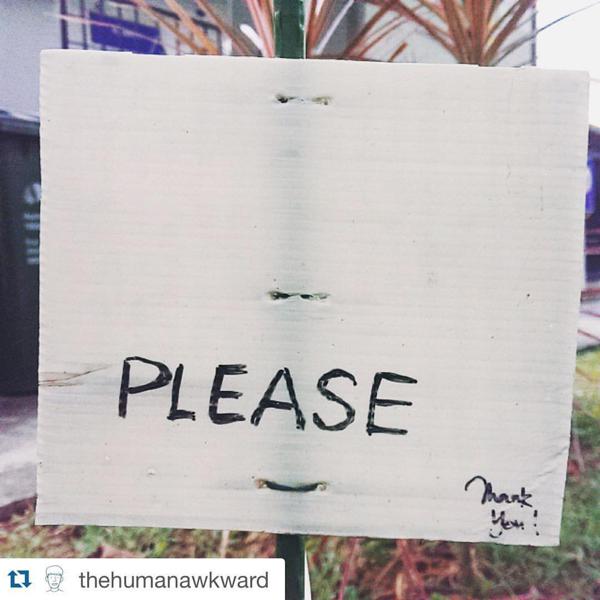 PLEASE
Thank
You!
thehumanawkward